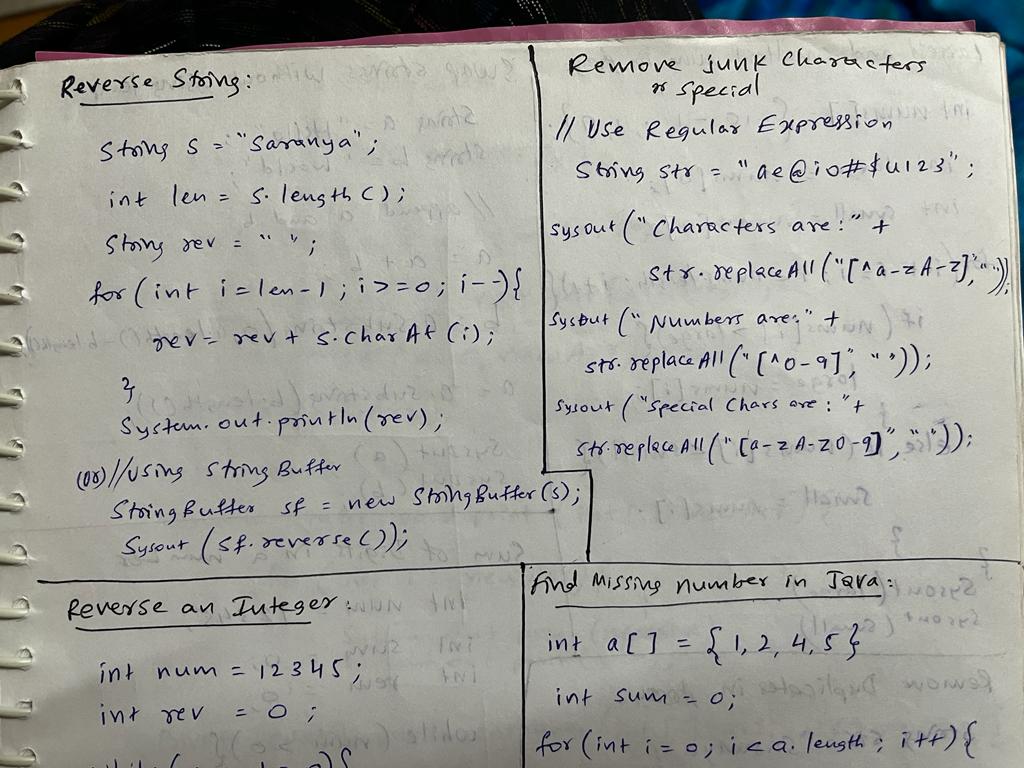 Reverse String:
String s = "Saranya";
int len = s.length();
String rev = " ";
for (int i=len-1; i>=0; i--){
rev = rev + s.charAt(i);
}
System.out.println(rev);
(Or)//Using StringBuffer
StringBuffer sf = new StringBuffer(s);
Sysout (sf.reverse());
Remove junk characters
or special
// Use Regular Expression
String str = "ae@io#$u123";
Sysout ("Characters are:" +
str.replaceAll("[^a-zA-Z]",""));
Sysout ("Numbers are:" +
str.replaceAll("[^0-9]", ""));
Sysout ("Special Chars are:" +
str.replaceAll("[a-zA-Z0-9]",""));
Reverse an Integer:
int num = 12345;
int rev = 0;
Find Missing number in Java:
int a[] = {1,2,4,5}
int sum = 0;
for (int i=0; i<a.length; i++){